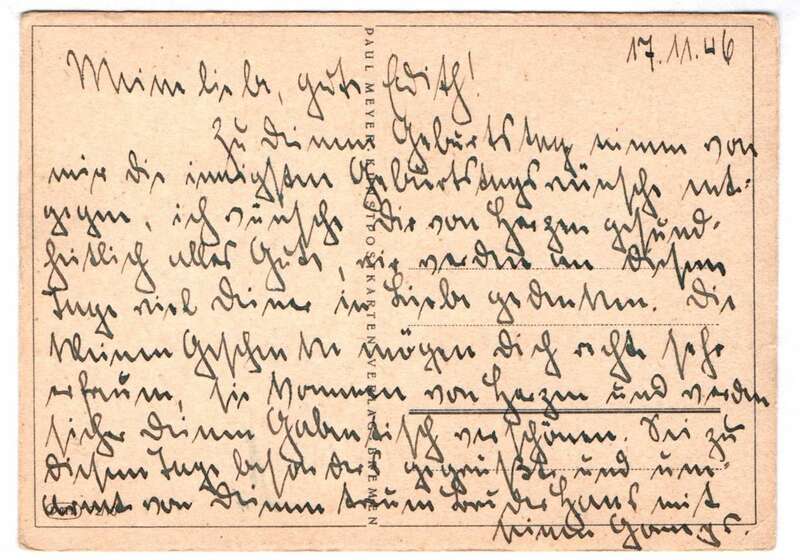 17.11.46
Meine liebe, gute Edith!
Zu Deinem Geburtstag nimm von
mir die innigsten Geburtstagswünsche ent-
gegen, ich wünsche Dir von Herzen gesund-
heitlich alles Gute, wir werden an diesem
Tage viel Deiner in Liebe gedenken. Die
kleinen Geschenke mögen Dich recht sehr
erfreuen, sie kommen von Herzen und werden
sicher Deinen Gabentisch verschönen. Sei zu
diesem Tage besonders gegrüßt und um-
armt von Deinem treuen Bruder Hans mit
seinen
PAUL MEYER KUNSTPOSTKARTEN VERLAG BREMEN